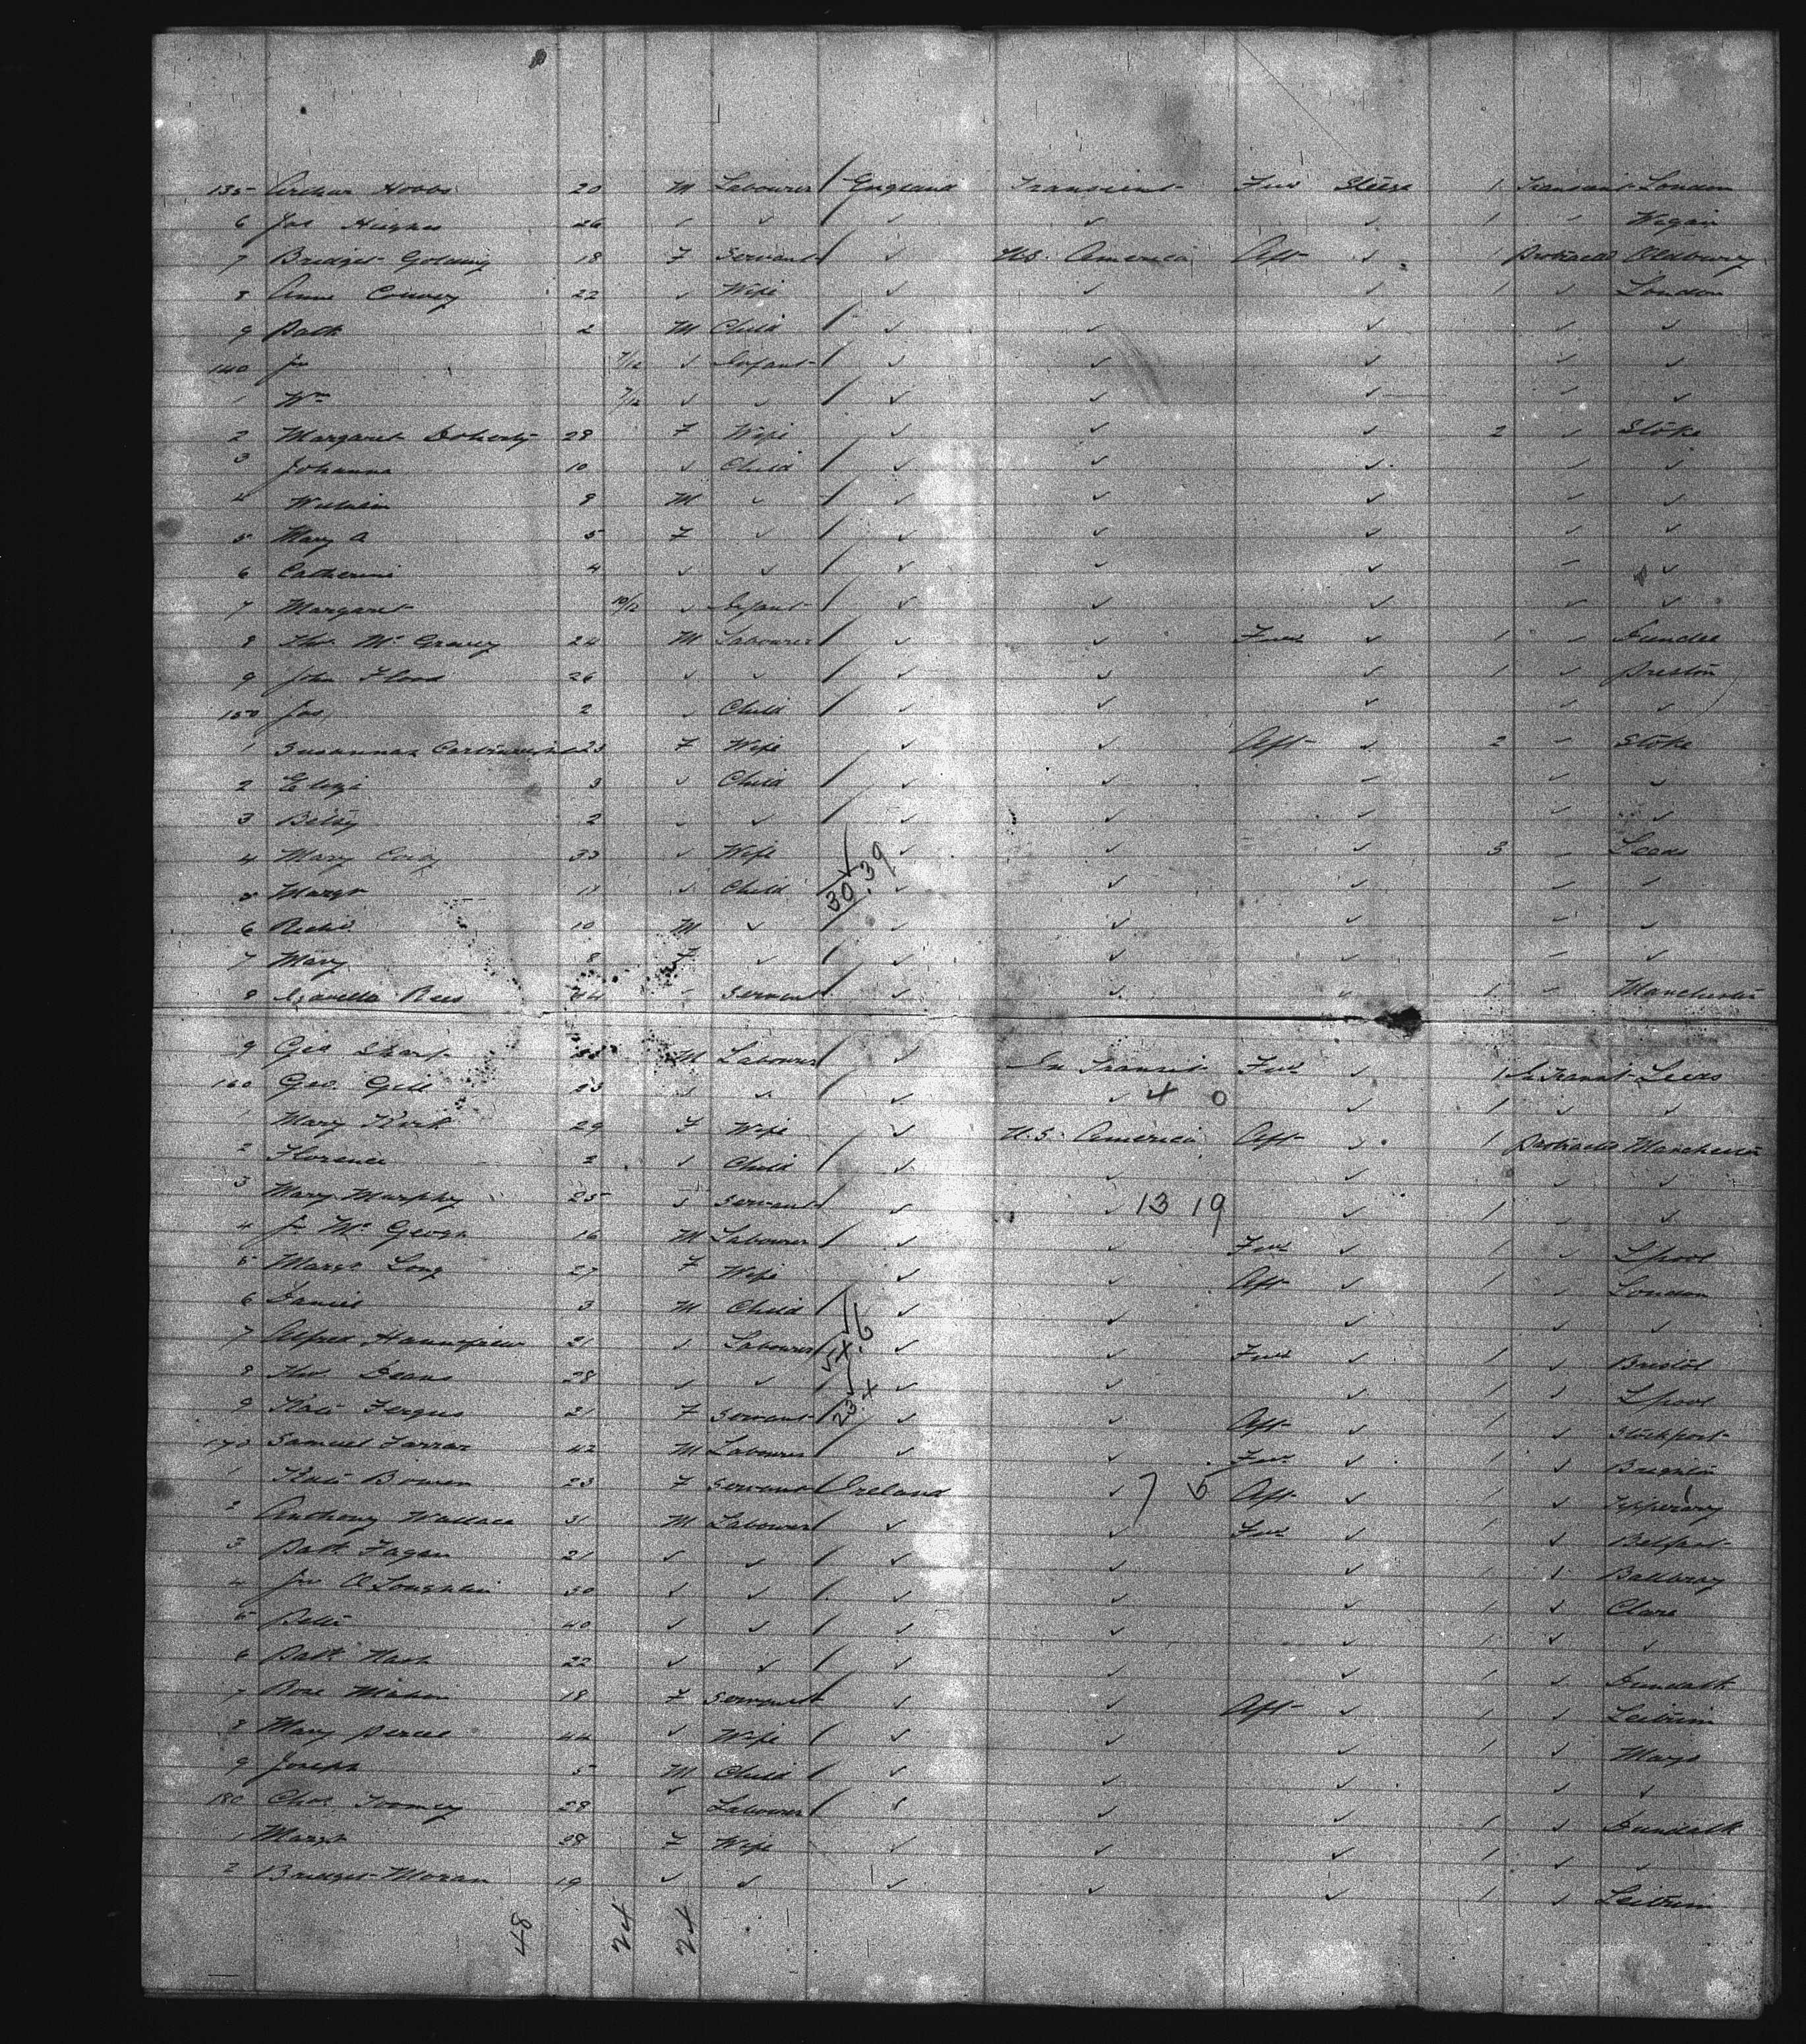 135 Arthur Hobbs 20 M Labourer / England Transient Fwd Steerage 1 Transient London
6 Jas Hughes 26 ✓ ✓ / ✓ ✓ ✓ 1 ✓ Wigan
7 Bridget Golding 18 F Servant / ✓ U.S. America Aft ✓ 1 Protracted Oldbury
8 Anne Convey 22 ✓ Wife ✓ ✓ ✓ 1 ✓ London
9 Patk 2 M Child / ✓ ✓ ✓ ✓ ✓
140 Jno 7/12 ✓ Infant / ✓ ✓ ✓ ✓ ✓
1 Wm 7/12 ✓ ✓ / ✓ ✓ ✓ ✓ ✓
2 Margaret Doherty 28 F Wife ✓ ✓ ✓ 2 ✓ Stoke
3 Johanna 10 ✓ Child / ✓ ✓ ✓ ✓ ✓
4 William 8 M ✓ / ✓ ✓ ✓ ✓ ✓
5 Mary A 5 F ✓ / ✓ ✓ ✓ ✓ ✓
6 Catherine 4 ✓ ✓ / ✓ ✓ ✓ ✓ ✓
7 Margaret 10/12 ✓ Infant / ✓ ✓ ✓ ✓ ✓
8 Thos 24 M Labourer / ✓ ✓ Fwd ✓ 1 ✓ Dundee
9 John Flood 26 ✓ ✓ / ✓ ✓ ✓ 1 ✓ Preston
150 Jas 2 ✓ Child / ✓ ✓ ✓ ✓ ✓
1 Susannah Cartwright 23 F Wife ✓ ✓ Aft ✓ 2 ✓ Stoke
2 Eliza 3 ✓ Child / ✓ ✓ ✓ ✓ ✓
3 Betsy 2 ✓ ✓ / ✓ ✓ ✓ ✓ ✓
4 Mary 33 ✓ Wife ✓ ✓ ✓ 3 ✓ Leeds
5 Margt 11 ✓ Child / 30.39 ✓ ✓ ✓ ✓ ✓
6 Richd 10 M ✓ / ✓ ✓ ✓ ✓ ✓
7 Mary 8 F ✓ / ✓ ✓ ✓ ✓ ✓
8 Isabella Rees 44 ✓ Servant ✓ ✓ ✓ 1 ✓ Manchester
9 Geo Sharp M Labourer / ✓ In Transit Fwd ✓ 1 In Transit Leeds
160 Geo. Gill 23 ✓ ✓ / ✓ ✓ 4 0 ✓ 1 ✓ ✓
1 Mary Kirk 29 F Wife ✓ U.S. America Aft ✓ 1 Protracted Manchester
2 Florence 2 ✓ Child / ✓ ✓ ✓ ✓ ✓
3 Mary Murphy 25 ✓ Servant ✓ ✓ 13 19 ✓ 1 ✓ ✓
4 Jno McGeogh 16 M Labourer / ✓ ✓ Fwd ✓ 1 ✓ Lpool
5 Margt Long 27 F Wife ✓ ✓ Aft ✓ 1 ✓ London
6 Daniel 3 M Child / ✓ ✓ ✓ ✓ ✓
7 Alfred 21 ✓ Labourer / ✓ ✓ Fwd ✓ 1 ✓ Bristol
8 Thos Deans 28 ✓ ✓ / ✓ ✓ ✓ 1 ✓ Lpool
9 Kate Fergus 21 F Servant / ✓ ✓ Aft ✓ 1 ✓ Stockport
170 Samuel Farrar 42 M Labourer / ✓ ✓ Fwd ✓ 1 ✓ Brighton
1 Kate Bowen 23 F Servant / Ireland ✓ 7 5 Aft ✓ 1 ✓ Tipperary
2 Anthony Wallace 31 M Labourer / ✓ ✓ Fwd ✓ 1 ✓ Belfast
3 Patk Fagan 21 ✓ ✓ / ✓ ✓ ✓ 1 ✓ Ballbray
4 Jno O'Loughlin 30 ✓ ✓ / ✓ ✓ ✓ 1 ✓ Clare
5 Peter 40 ✓ ✓ / ✓ ✓ ✓ 1 ✓ ✓
6 Patk Nash 22 ✓ ✓ / ✓ ✓ ✓ 1 ✓ Dundalk
7 Rose Mahon 18 F Servant ✓ ✓ Aft ✓ 1 ✓ Leitrim
8 Mary 44 ✓ Wife / ✓ ✓ ✓ 1 ✓ Mayo
9 Joseph 5 M Child / ✓ ✓ ✓ ✓ ✓
180 Chas Toomey 28 ✓ Labourer / ✓ ✓ ✓ 1 ✓ Dundalk
1 Margt 28 F Wife ✓ ✓ ✓ 1 ✓ ✓
2 Bridget Moran 19 ✓ ✓ ✓ ✓ ✓ 1 ✓ Leitrim
48 24 24